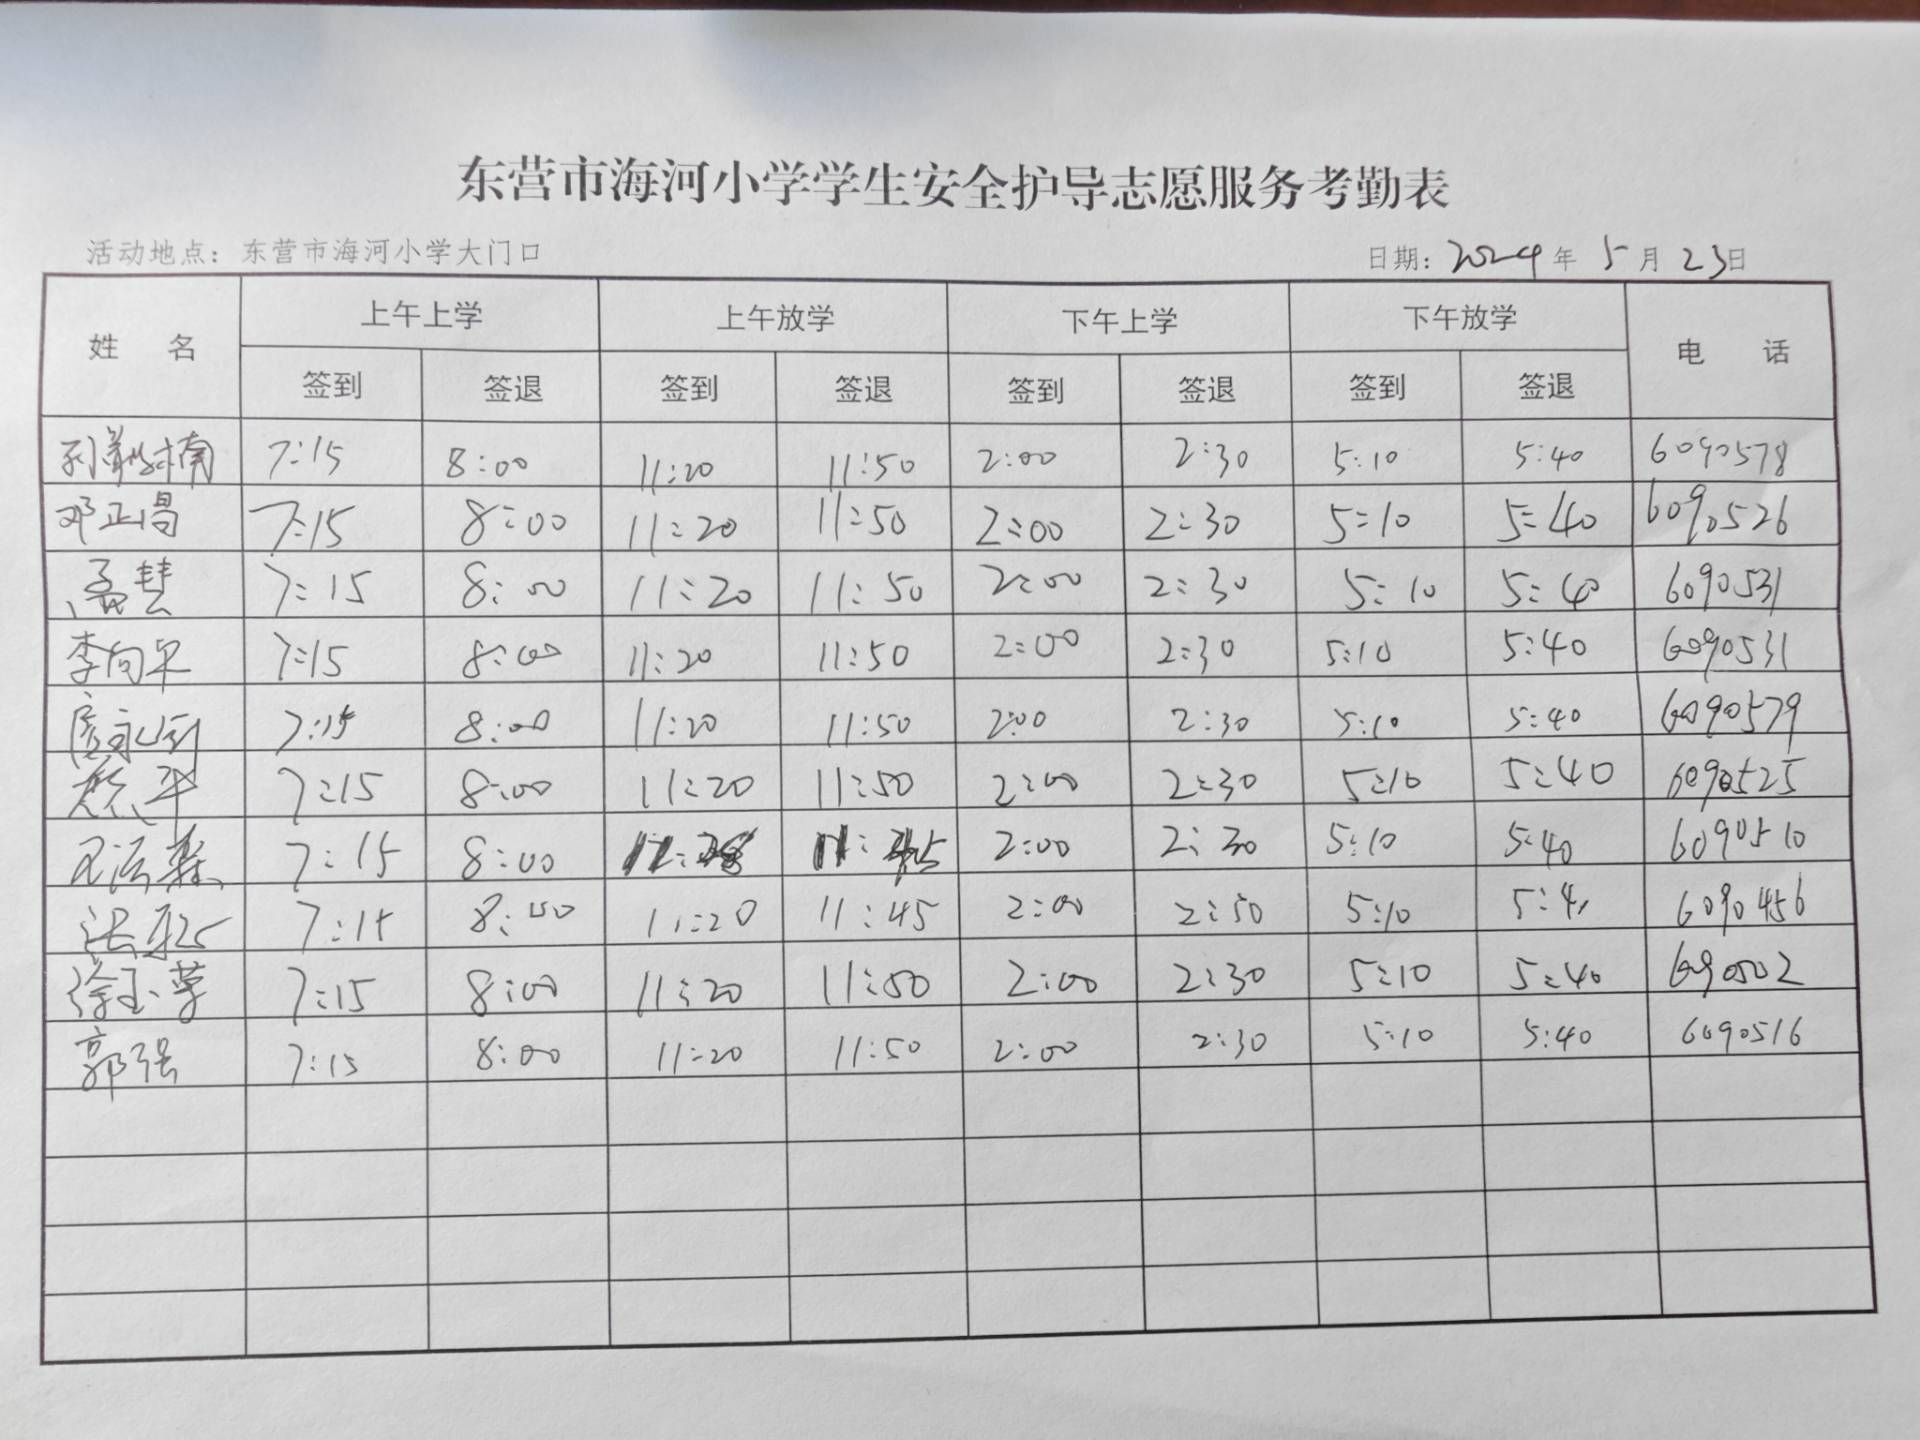 东营市海河小学学生安全护导志愿服务考勤表
活动地点：东营市海河小学大门口 日期：2024年5月23日
姓 名 上午上学 上午放学 下午上学 下午放学 电 话
签到 签退 签到 签退 签到 签退 签到 签退
7:15 8:00 11:20 11:50 2:00 2:30 5:10 5:40 6090578
邓正昌 7:15 8:00 11:20 11:50 2:00 2:30 5:10 5:40 6090526
孟慧 7:15 8:00 11:20 11:50 2:00 2:30 5:10 5:40 6090531
李向早 7:15 8:00 11:20 11:50 2:00 2:30 5:10 5:40 6090531
7:15 8:00 11:20 11:50 2:00 2:30 5:10 5:40 6090579
7:15 8:00 11:20 11:50 2:00 2:30 5:10 5:40 6090525
7:15 8:00 2:00 2:30 5:10 5:40 6090510
7:15 8:00 11:20 11:45 2:00 5:10 6090456
徐玉苓 7:15 8:00 11:20 11:50 2:00 2:30 5:10 5:40 6090502
郭强 7:15 8:00 11:20 11:50 2:00 2:30 5:10 5:40 6090516